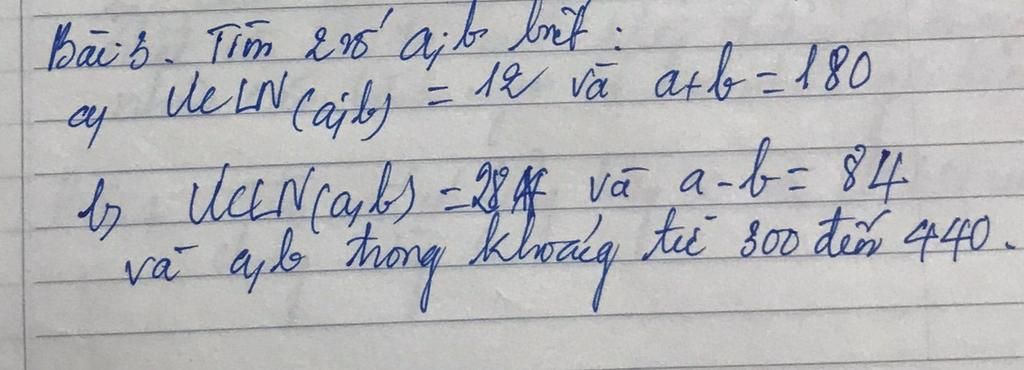 Bài 3. Tìm 2 số a,b biết:
a, ƯCLN(a;b) = 12 và a+b = 180
b, ƯCLN(a,b) = 28 và a-b = 84
và a,b trong khoảg từ 300 đến 440.